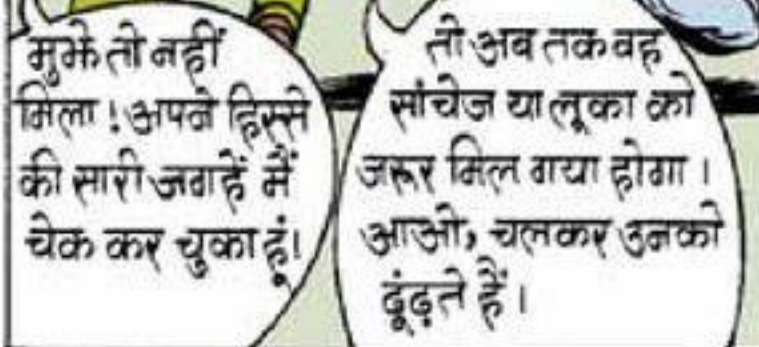 मुझे तो नहीं
मिला! अपने हिस्से
की सारी जगहें मैं
चेक कर चुका हूं।
तो अब तक वह
सांचेज या लूका को
जरूर मिल गया होगा।
आओ, चलकर उनको
ढूंढ़ते हैं।